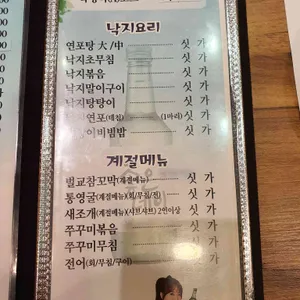 낙지요리
연포탕 大/中 싯 가
낙지초무침 싯 가
낙지볶음 싯 가
낙지말이구이 싯 가
낙지탕탕이 싯 가
연포(데침) (1마리) 싯 가
이비빔밥 싯 가
계절메뉴
벌교참꼬막(계절메뉴) 싯 가
통영굴(계절메뉴)(회/찜/전) 싯 가
새조개(계절메뉴)(샤브샤브) 2인이상 싯 가
쭈꾸미볶음 싯 가
쭈꾸미무침 싯 가
전어(회/무침/구이) 싯 가